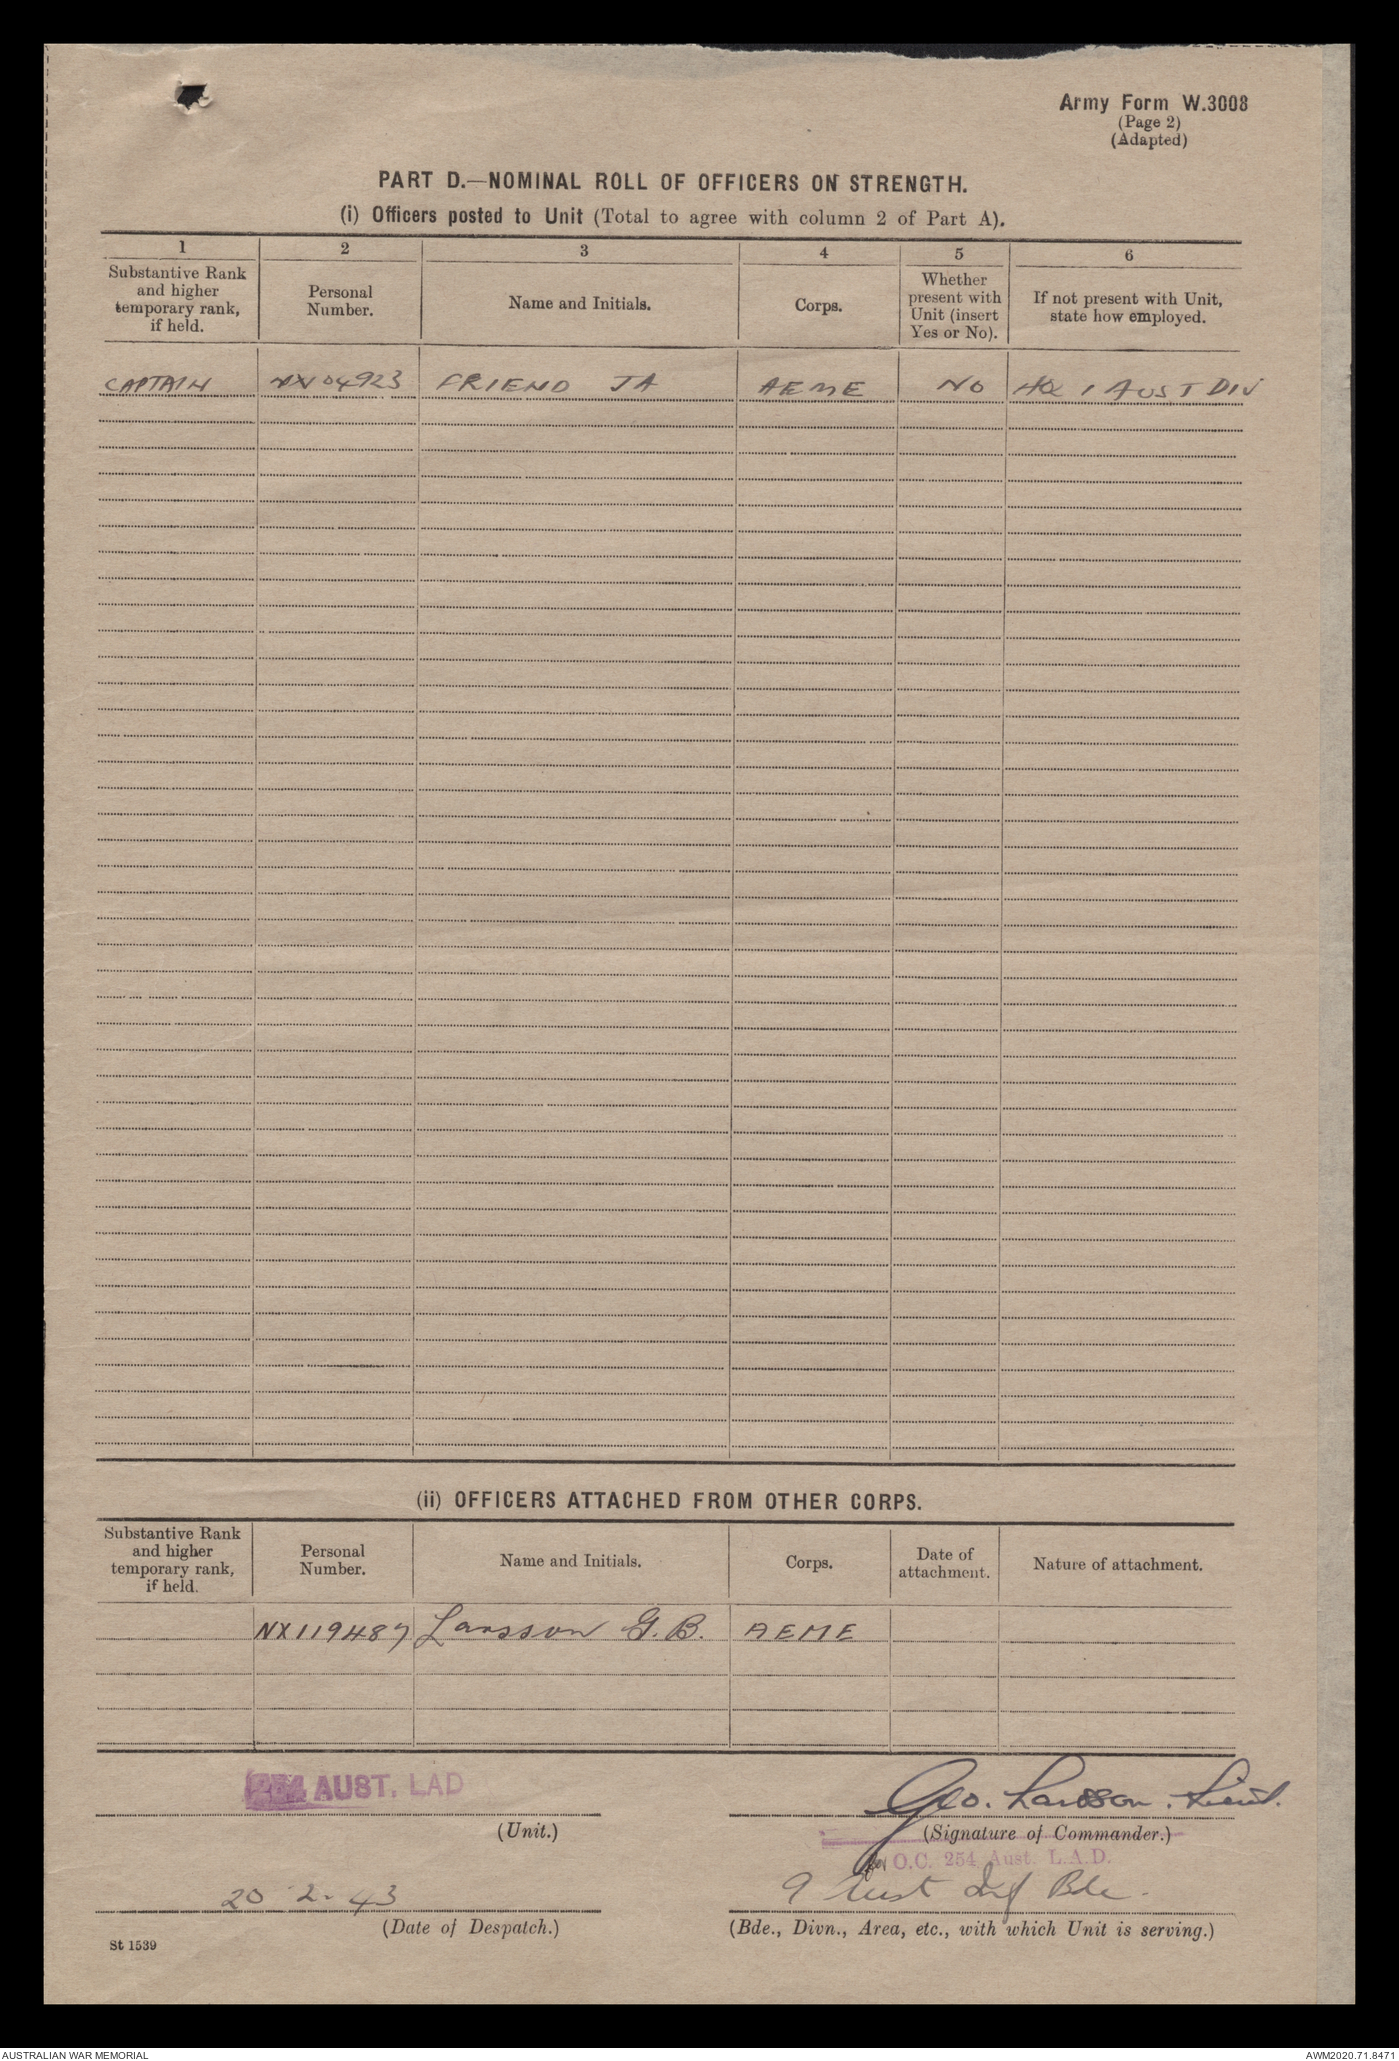 Army Form W.3008
(Page 2)
(Adapted)
PART D.—NOMINAL ROLL OF OFFICERS ON STRENGTH.
(i) Officers posted to Unit (Total to agree with column 2 of Part A).
1 2 3 4 5 6
Substantive Rank and higher temporary rank, if held. Personal Number. Name and Initials. Corps. Whether present with Unit (insert Yes or No). If not present with Unit, state how employed.
CAPTAIN NX104923 FRIEND JA AEME NO HQ 1 AUST DIV
(ii) OFFICERS ATTACHED FROM OTHER CORPS.
Substantive Rank and higher temporary rank, if held. Personal Number. Name and Initials. Corps. Date of attachment. Nature of attachment.
NX119487 Larsson G.B. AEME
254 AUST. LAD
Geo. Larsson. Lieut.
(Unit.)
(Signature of Commander.)
for O.C. 254 Aust. L.A.D.
20 2. 43
9 Aust Inf Bde.
(Date of Despatch.)
(Bde., Divn., Area, etc., with which Unit is serving.)
St 1539
AUSTRALIAN WAR MEMORIAL
AWM2020.71.8471